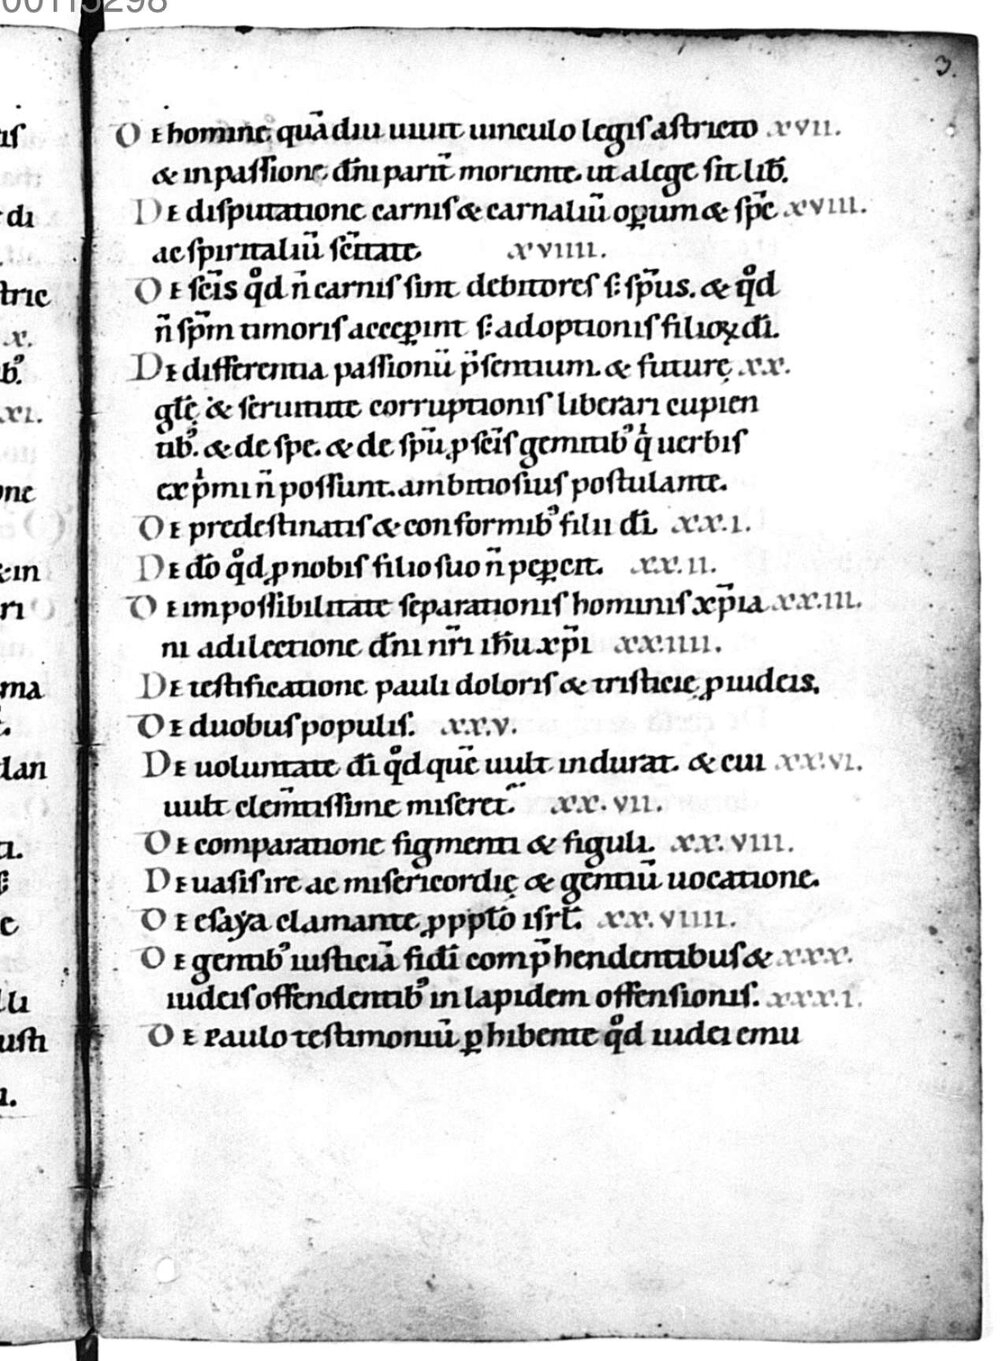 00113298
3.
De homine quā diu uiuit uinculo legis astricto .xvii.
& in passione dn̄i parit̄ moriente. ut a lege sit lib̄.
De disputatione carnis & carnaliū oꝑum & sp̄c xviii.
ac spiritaliū sēitate xviiii.
De scīs qͦd n̄ carnis sint debitores s; sp̄us. & qͦd
n̄ sp̄m timoris acceꝑint s; adoptionis filioꝝ dī.
De differentia passionū p̄sentium. & futurę .xx.
glē & seruitute corruptionis liberari cupien
tib᾿. & de spe. & de sp̄u ꝓ scīs gemitib᾿ qͥ uerbis
expͥmi n̄ possunt. ambitiosius postulante.
De predestinatis & conformib᾿ filii dī. xx.i.
De dō qͦd ꝓ nobis filio suo n̄ peꝑcit. xx.ii.
De impossibilitate separationis hominis xp̄ia xx.iii.
ni a dilectione dn̄i nr̄i ih̄u xp̄i xx.iiii.
De testificatione pauli doloris & tristicię ꝓ iudeis.
De duobus populis. xx.v.
De uoluntate dī qͦd quē uult indurat. & cui xx.vi.
uult clem̄tissime miseret̄. xx.vii.
De comparatione figmenti & figuli. xx.viii.
De uasis ire ac misericordię & gentiū uocatione.
De esaya clamante ꝓ ppłō isrł. xx.viiii.
De gentib᾿ iusticiā fidī comp̄hendentibus & xxx.
iudeis offendentib᾿ in lapidem offensionis. xxx.i.
De Paulo testimoniū ꝑhibente qͦd iudei emu